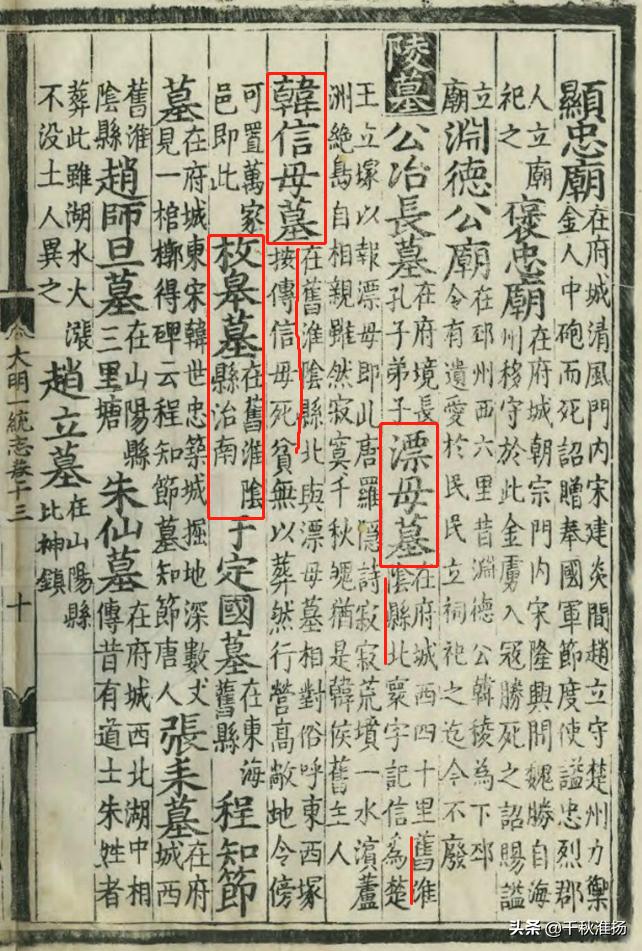 顯忠廟在府城清風門内宋建炎間趙立守楚州力禦金人中砲而死詔贈奉國軍節度使謚忠烈郡
人立廟祀之褒忠廟在府城朝宗門内宋隆興間魏勝自海州移守於此金虜入冠勝死之詔賜謚
立廟淵德公廟在邳州西六里昔淵德公韓稜為下邳令有遺愛於民民立祠祀之迄今不廢
陵墓公冶長墓在府境長孔子弟子漂母墓在府城西四十里舊淮隂縣北寰宇記信為楚
王立塚以報漂母即此唐羅隱詩寂寂荒墳一水濵蘆洲絶島自相親雖然寂寞千秋魄猶是韓侯舊主人
韓信母墓在舊淮隂縣北與漂母墓相對俗呼東西塚按傳信母死貧無以葬然行營高敞地令傍
可置萬家邑即此枚皋墓在舊淮隂縣治南于定國墓在東海舊縣程知節
墓在府城東宋韓世忠築城掘地深數丈見一棺槨得碑云程知節墓知節唐人張耒墓在府城西
舊淮隂縣趙師旦墓在山陽縣三里塘朱仙墓在府城西北湖中相傳昔有道士朱姓者
葬此雖湖水大漲不没土人異之趙立墓在山陽縣北神鎮
大明一統志卷十三 十
头条 @千秋淮扬